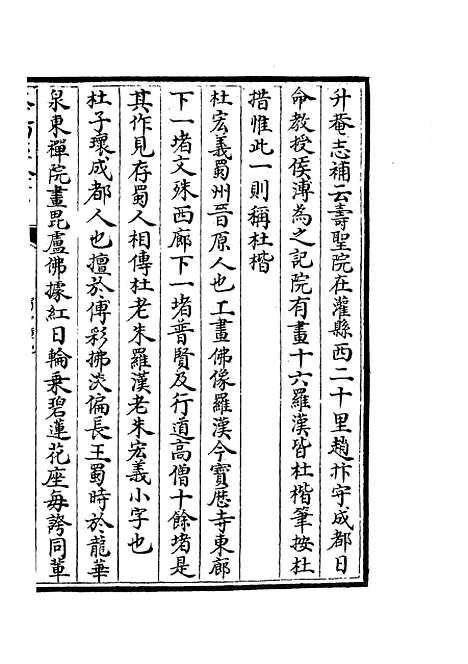 升菴志補云壽聖院在灌縣西二十里趙抃守成都日
命教授侯溥為之記院有畫十六羅漢皆杜楷筆按杜
措惟此一則稱杜楷
杜宏義蜀州晉原人也工畫佛像羅漢今寶歴寺東廊
下一堵文殊西廊下一堵普賢及行道高僧十餘堵是
其作見存蜀人相傳杜老朱羅漢老朱宏義小字也
杜子瓌成都人也擅於傅彩拂淡偏長王蜀時於龍華
泉東禪院畫毘盧佛據紅日輪乗碧蓮花座毎誇同軰